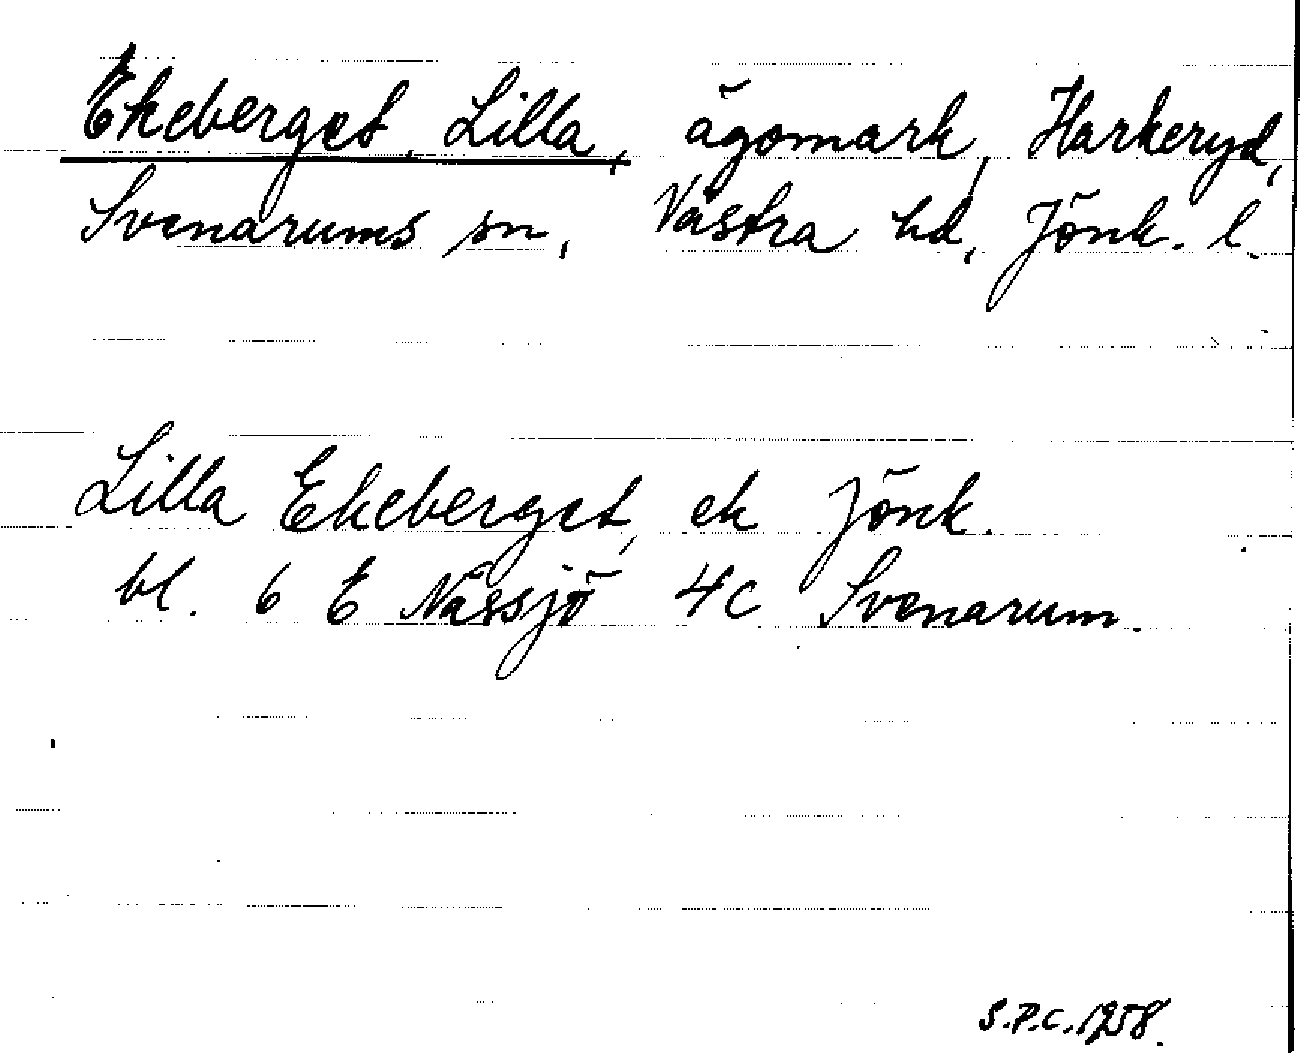 Ekeberget, Lilla, ägomark, Harkeryd,
Svenarums sn, Västra hd, Jönk. l.
Lilla Ekeberget, ek Jönk.
bl. 6 E Nässjö 4c Svenarum.
S.P.C. 1958.